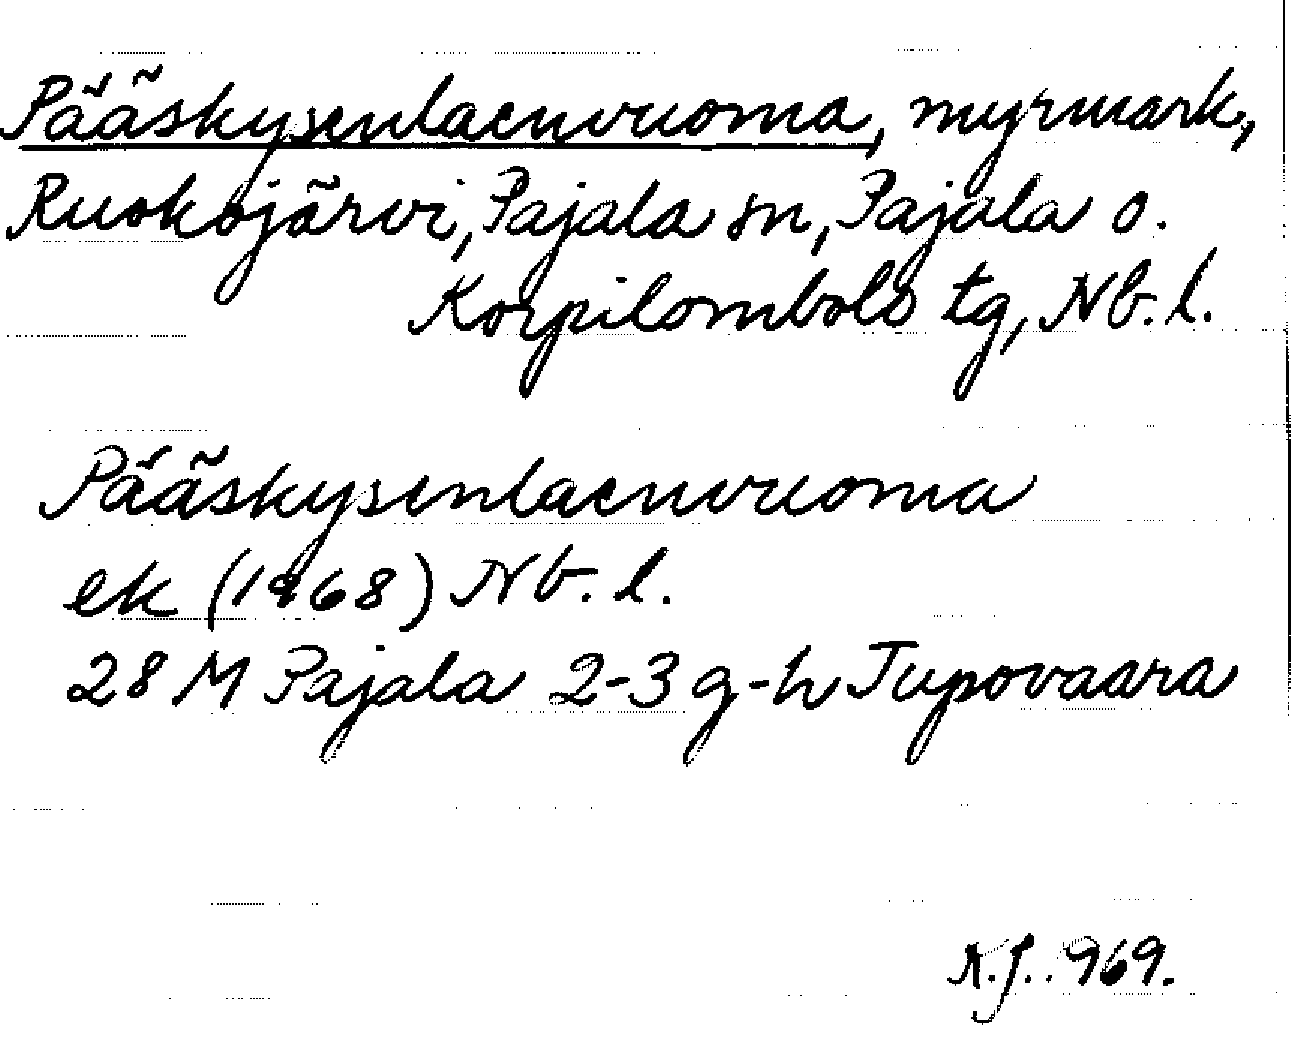 Pääskysenlaenvuoma, myrmark,
Ruokojärvi, Pajala sn, Pajala o.
Korpilombolo tg, Nb. l.
Pääskysenlaenvuoma
ek (1968) Nb. l.
28 M Pajala 2-3 g-h Jupovaara
K.J. 969.